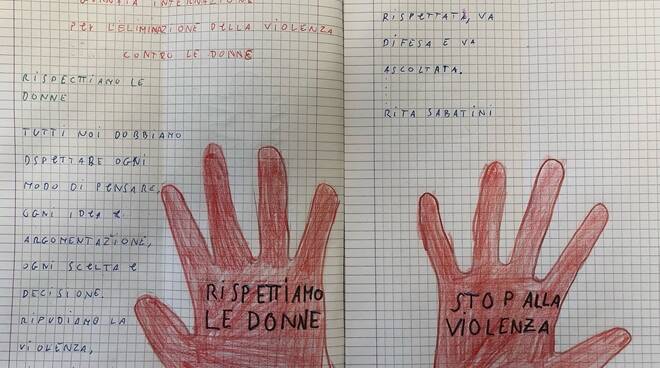 GIORNATA INTERNAZIONALE
PER L'ELIMINAZIONE DELLA VIOLENZA
CONTRO LE DONNE
RISPETTIAMO LE
DONNE
TUTTI NOI DOBBIAMO
RISPETTARE OGNI
MODO DI PENSARE,
OGNI IDEA E
ARGOMENTAZIONE,
OGNI SCELTA E
DECISIONE.
RIPUDIAMO LA
VIOLENZA,
RISPETTIAMO
LE DONNE
RISPETTATA, VA
DIFESA E VA
ASCOLTATA.
RITA SABATINI
STOP ALLA
VIOLENZA